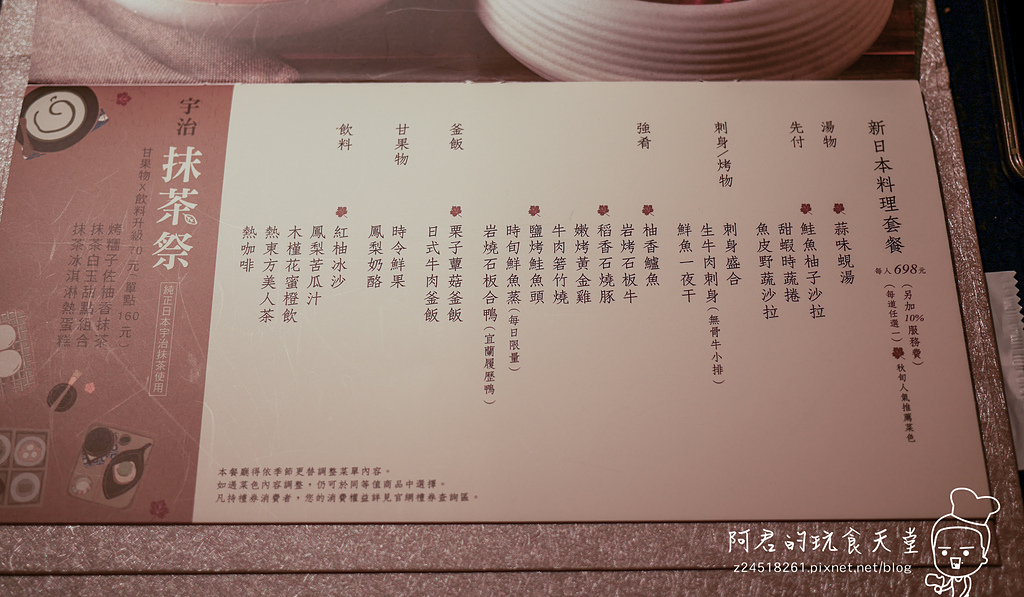 新日本料理套餐
每人698元
(另加10%服務費)
(每道任選一)
秋旬人氣推薦菜色
湯物
蒜味蜆湯
先付
鮭魚柚子沙拉
甜蝦時蔬捲
魚皮野蔬沙拉
刺身/烤物
刺身盛合
生牛肉刺身(無骨牛小排)
鮮魚一夜干
強肴
柚香鱸魚
岩烤石板牛
稻香石燒豚
嫩烤黃金雞
牛肉箬竹燒
鹽烤鮭魚頭
時旬鮮魚蒸(每日限量)
岩燒石板合鴨(宜蘭履歷鴨)
釜飯
栗子蕈菇釜飯
日式牛肉釜飯
甘果物
時令鮮果
鳳梨奶酪
飲料
紅柚冰沙
鳳梨苦瓜汁
木槿花蜜橙飲
熱東方美人茶
熱咖啡
本餐廳得依季節更替調整菜單內容。
如遇菜色內容調整，仍可於同等值商品中選擇。
凡持禮券消費者，您的消費權益詳見官網禮券查詢區。
宇治
抹茶祭
純正日本宇治抹茶使用
甘果物X飲料升級70元(單點160元)
烤糰子佐柚香抹茶
抹茶白玉甜點組合
抹茶冰淇淋熱蛋糕
阿君的玩食天堂
z24518261.pixnet.net/blog